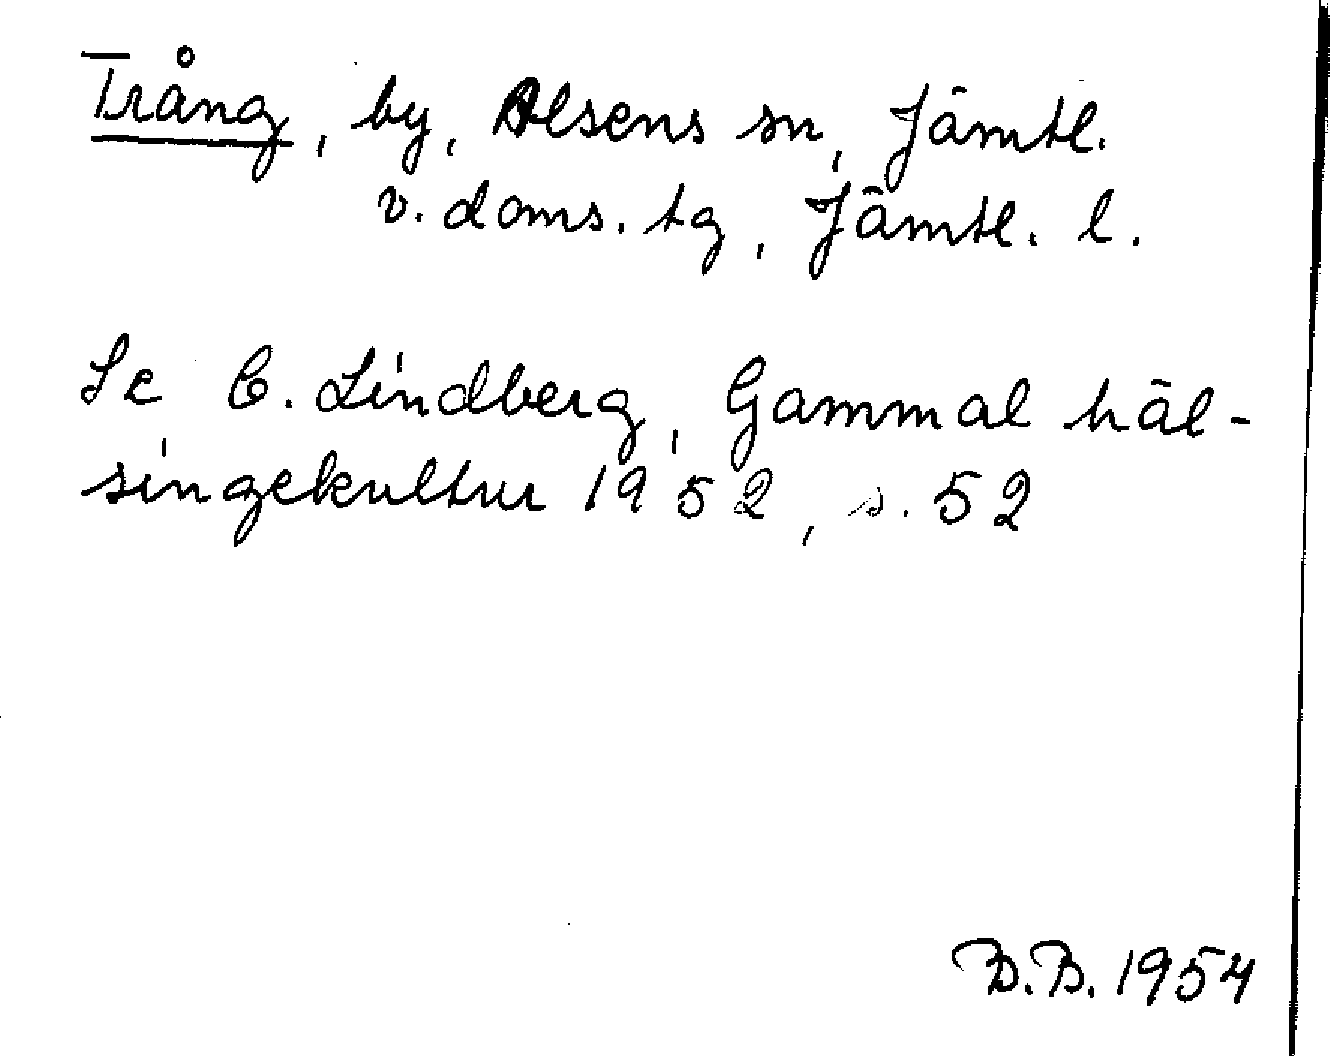 Trång, by, Alsens sn, Jämtl.
v. doms. tg, Jämtl. l.
Se C. Lindberg, Gammal häl-
singekultur 1952, s. 52
B.B. 1954